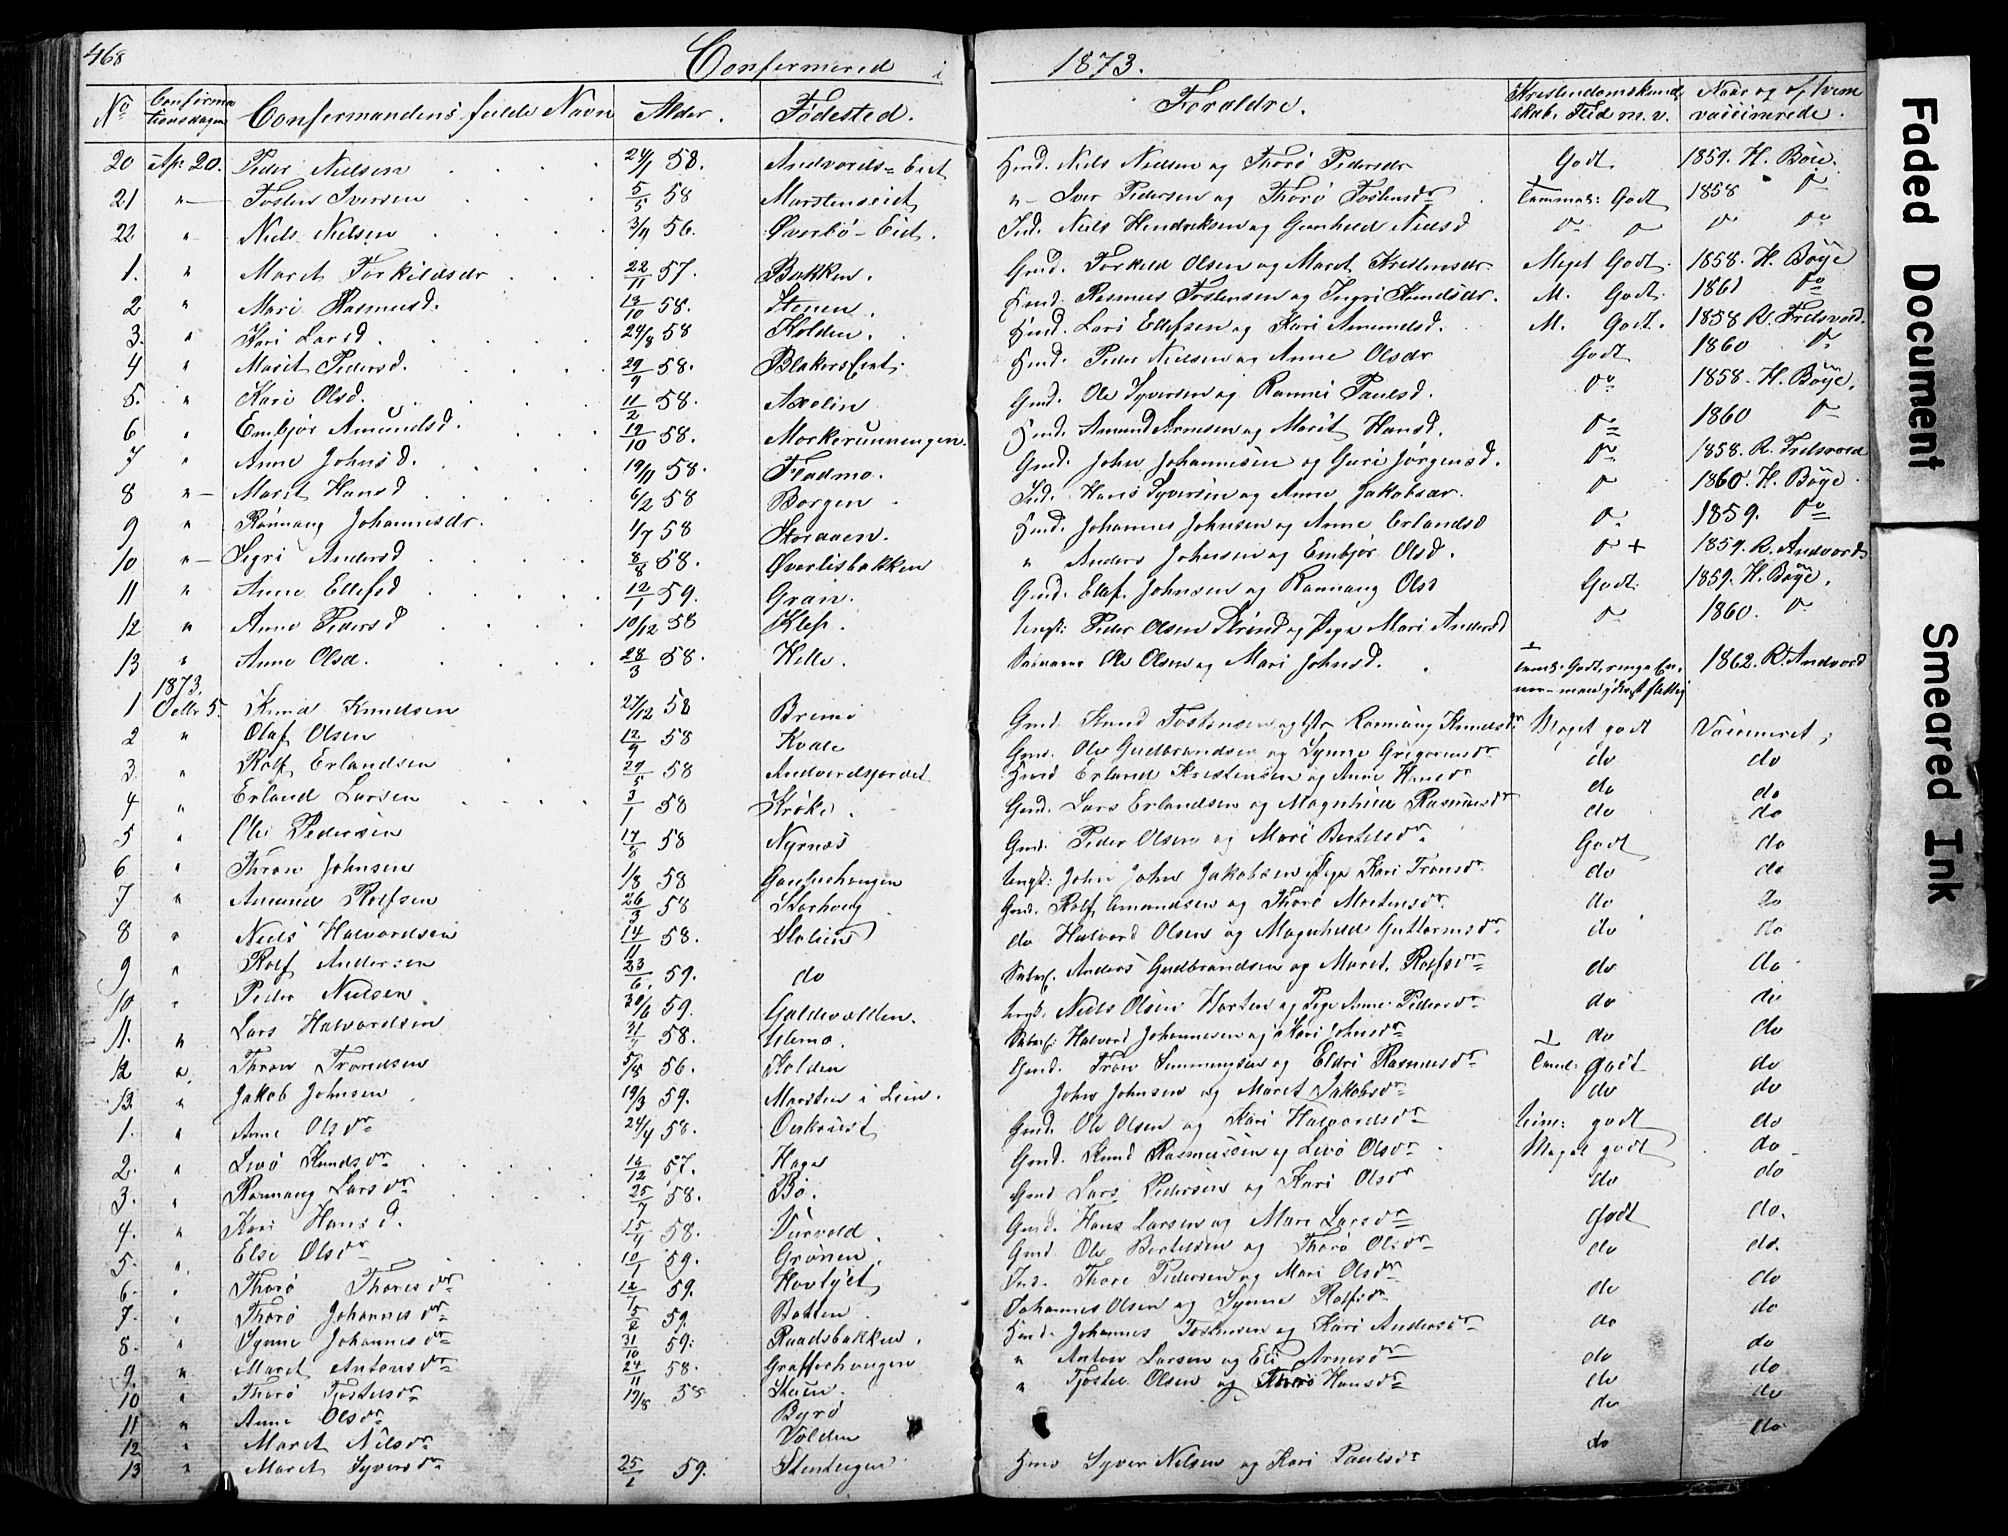 468 Confermered i 1873.
No Confirmationsdagen Confermandens fulde Navn Alder. Fødested. Foraldre. Kristendomskundskab, Flid m. v. Naar og af hvem vaccinerede.
20 Apr 20. Peder Nielsen 24/1 58. Andvords-Eiet Hmd. Niels Nielsen og Thorø Pedersdr Godt 1859. H. Böie.
21 " Tosten Iversen 5/5 58 Marstenseiet "- Iver Pedersen og Thorø Tostensdr Temmel: Godt 1858 do
22 " Niels Nielsen 3/9 56. Øverbø-Eiet. Ind. Niels Hendriksen og Gunhild Nielsd do do do do
1. " Marit Torkildsdr 22/11 57. Bakken. Gmd. Torkild Olsen og Marit Kristensdr. Meget Godt. 1858. H. Böye
2 " Mari Rasmusd. 13/10 58. Stenen. Hmd. Rasmus Tostensen og Ingri Knudsdr. M. Godt. 1861 do
3. " Kari Larsd. 24/8 58 Kolden. Hmd. Lars Ellefsen og Kari Amundsd. M. Godt. 1858 R. Frelsvold.
4 " Marit Pedersd. 29/9 58. Blakers Eiet. Hmd. Peder Nielsen og Anne Olsdr Godt 1860 do
5. " Kari Olsd. 11/2 58. Axelin Gmd. Ole Syversen og Rannei Paulsd. do 1858. H. Böye.
6 " Embjør Amundsd. 12/10 58. Morkerunningen. Hmd. Amund Arnesen og Marit Hansd. do 1860 do
7 " Anne Johnsd. 19/11 58. Fladmo. Gmd. John Johannesen og Guri Jørgensd. do 1858. R. Frelsvold
8 "- Marit Hansd 6/2 58 Borgen Ind. Hans Syversen og Anne Jakobsdr. do 1860. H. Böye.
9 " Rønnaug Johannesdr. 1/7 58 Storaaen. Hmd. Johannes Johnsen og Anne Erlandsd do 1859. do
10 "- Sigri Andersd 8/8 58. Øverlisbakken " Anders Johnsen og Embjør Olsd. do + 1859. R. Andvord
11 " Anne Ellefsd 12/1 59. Gran. Gmd. Ellef Johnsen og Rannaug Olsd Godt. 1859. H. Böye.
12 " Anne Pedersd 10/12 58 Klep. Ungk: Peder Olsen Strind og Pige Mari Andersd do 1860. do
13 " Anne Olsd. 28/3 58. Helle. Ole Olsen og Mari Johnsd. 1862. R. Andvord
1873.
1 Octbr 5. Knud Knudsen 27/12 58 Bremo Gmd. Knud Tostensen og Rannaug Knudsdr Meget godt Vaccineret
2 " Olaf Olsen 12/9 58 Kvale Gmd. Ole Gudbrandsen og Synne Gregoriusdr do do
3. " Rolf Erlandsen 29/5 58 Andvordsjordet Hmd Erland Kristensen og Anne Hansdr do do
4 " Erland Larsen 3/1 58 Krøke. Gmd. Lars Erlandsen og Magnhild Rasmusdr do do
5 " Ole Pedersen 17/8 58 Nyrnæs Gmd. Peder Olsen og Mari Bertelsdr Godt do
6 " Thron Johnsen 1/8 58 Ungk: John Jakobsen Pige Kari Tronsdr do do
7 " Amund Rolfsen 26/3 58 Storhoug Gmd. Rolf Amundsen og Thorø Mortensdr do do
8 " Niels Halvordsen 14/11 58. Stolien do Halvord Olsen og Magnhild Guttormsdr do do
9 " Rolf Andersen 23/6. 59. do Anders Gudbrandsen og Marit Rolfsdr do do
10 " Peder Nielsen 30/6 59. Galdevolden. Ungk. Niels Olsen Horten og Pige Anne Pedersdr do do
11. " Lars Halvordsen 31/7 58. Selmo. Halvord Johannesen og Kari Johnsdr do do
12 " Thron Trondsen 5/8 56. Kolden Gmd. Tron Simmingsen og Eldri Rasmusdr Teml: godt do
13. " Jakob Johnsen 19/3 59. Marsten i Lien. John Johnsen og Marit Jakobsdr do do
1. " Anne Olsdr 24/4 58. Gmd. Ole Olsen og Kari Halvordsdr Teml: godt do
2. " Livø Knudsdr 16/12 57. Hage Gmd. Knud Rasmussen og Livø Olsdr Meget godt do
3. " Rannaug Larsdr 25/7 58. Bø. Gmd Lars Pedersen og Kari Olsdr do do
4. " Kari Hansd. 15/4 58. Gmd. Hans Larsen og Mari Larsdr Godt do.
5. " Else Olsdr 10/1 59. Grønen. Gmd. Ole Bertelsen og Thorø Olsdr do do.
6. " Thorø Thoresdr 12/1 59. Ind. Thore Pedersen og Mari Olsdr do do
7. " Thorø Johannesdr 5/2 59. Botten Johannes Olsen og Synne Rolfsdr do do
8. " Synne Johannesdr 31/10 59. Raadsbakken. Hmd. Johannes Tostensen og Kari Andersdr do do
9. " Marit Antonsdr 24/11 58. " Anton Larsen og Eli Arnesdr do do
10 " Thorø Tjostelsdr 19/8 58 Steen. " Tjostel Olsen og Thorø Hansdr do do
11 " Anne Olsdr Byrø do
12 " Marit Nilsdr Volden do
13 " Marit Syversdr 25/1 59. Hmd Syver Nilsen og Kari Paulsdr
Faded Document
Smeared Ink